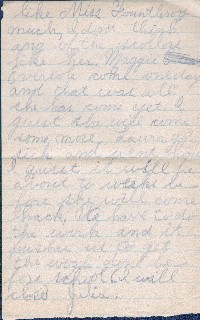 like Miss Fountleroy
much, I don't think
any of the scollors
like her. Maggie
Eversole come one day
and that was all
she has come yet. I
guess she will come
some more. Laura got
sick and went home
I guess it will be
about to weeks be
fore she will come
back. We have to do
the work and it
us to get
the work done be
fore school. I will
close Julia.